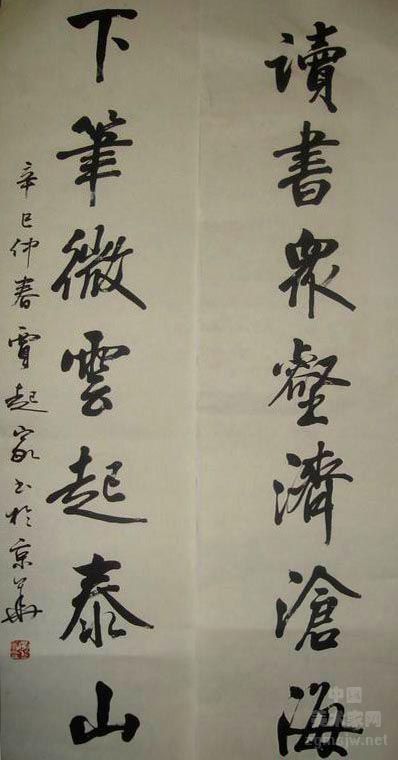 讀書衆壑濟滄海
下筆微雲起泰山
辛巳仲春賈起家书於京華
中国
美术家网
zgmsjw.net